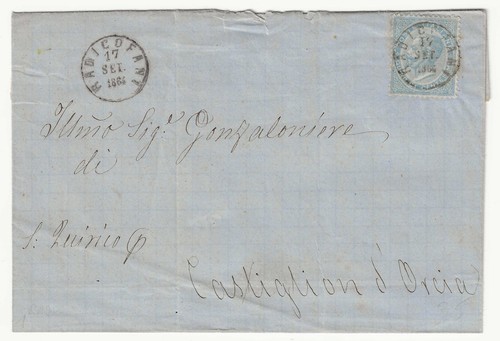 RADICOFANI
17
SET.
1864
RADICOFANI
17
SET
1864
Illmo Sigr. Gonfaloniere
di
S. Quirico p
Castiglion d'Orcia